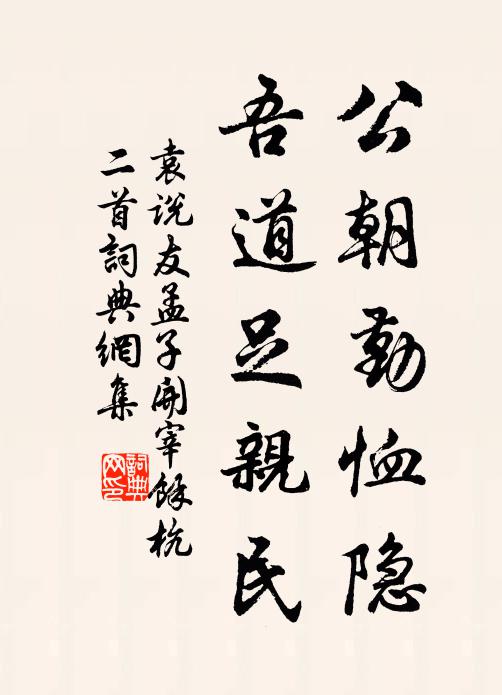 公朝勤恤隐
吾道足親民
袁说友孟子開宰餘杭
二首詞典網集
詞典网印